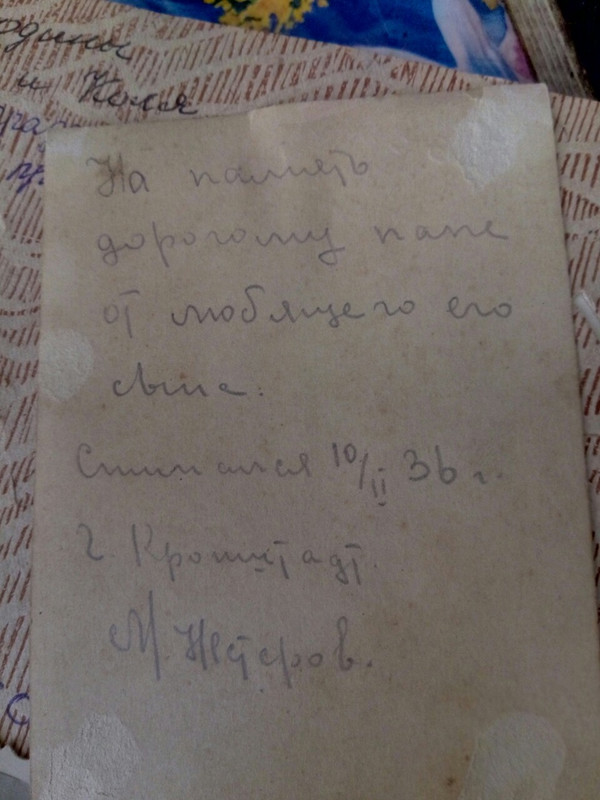 и Коля
На память
дорогому папе
от любящего его
сына.
Снимался 10/II 36 г.
г. Кронштадт